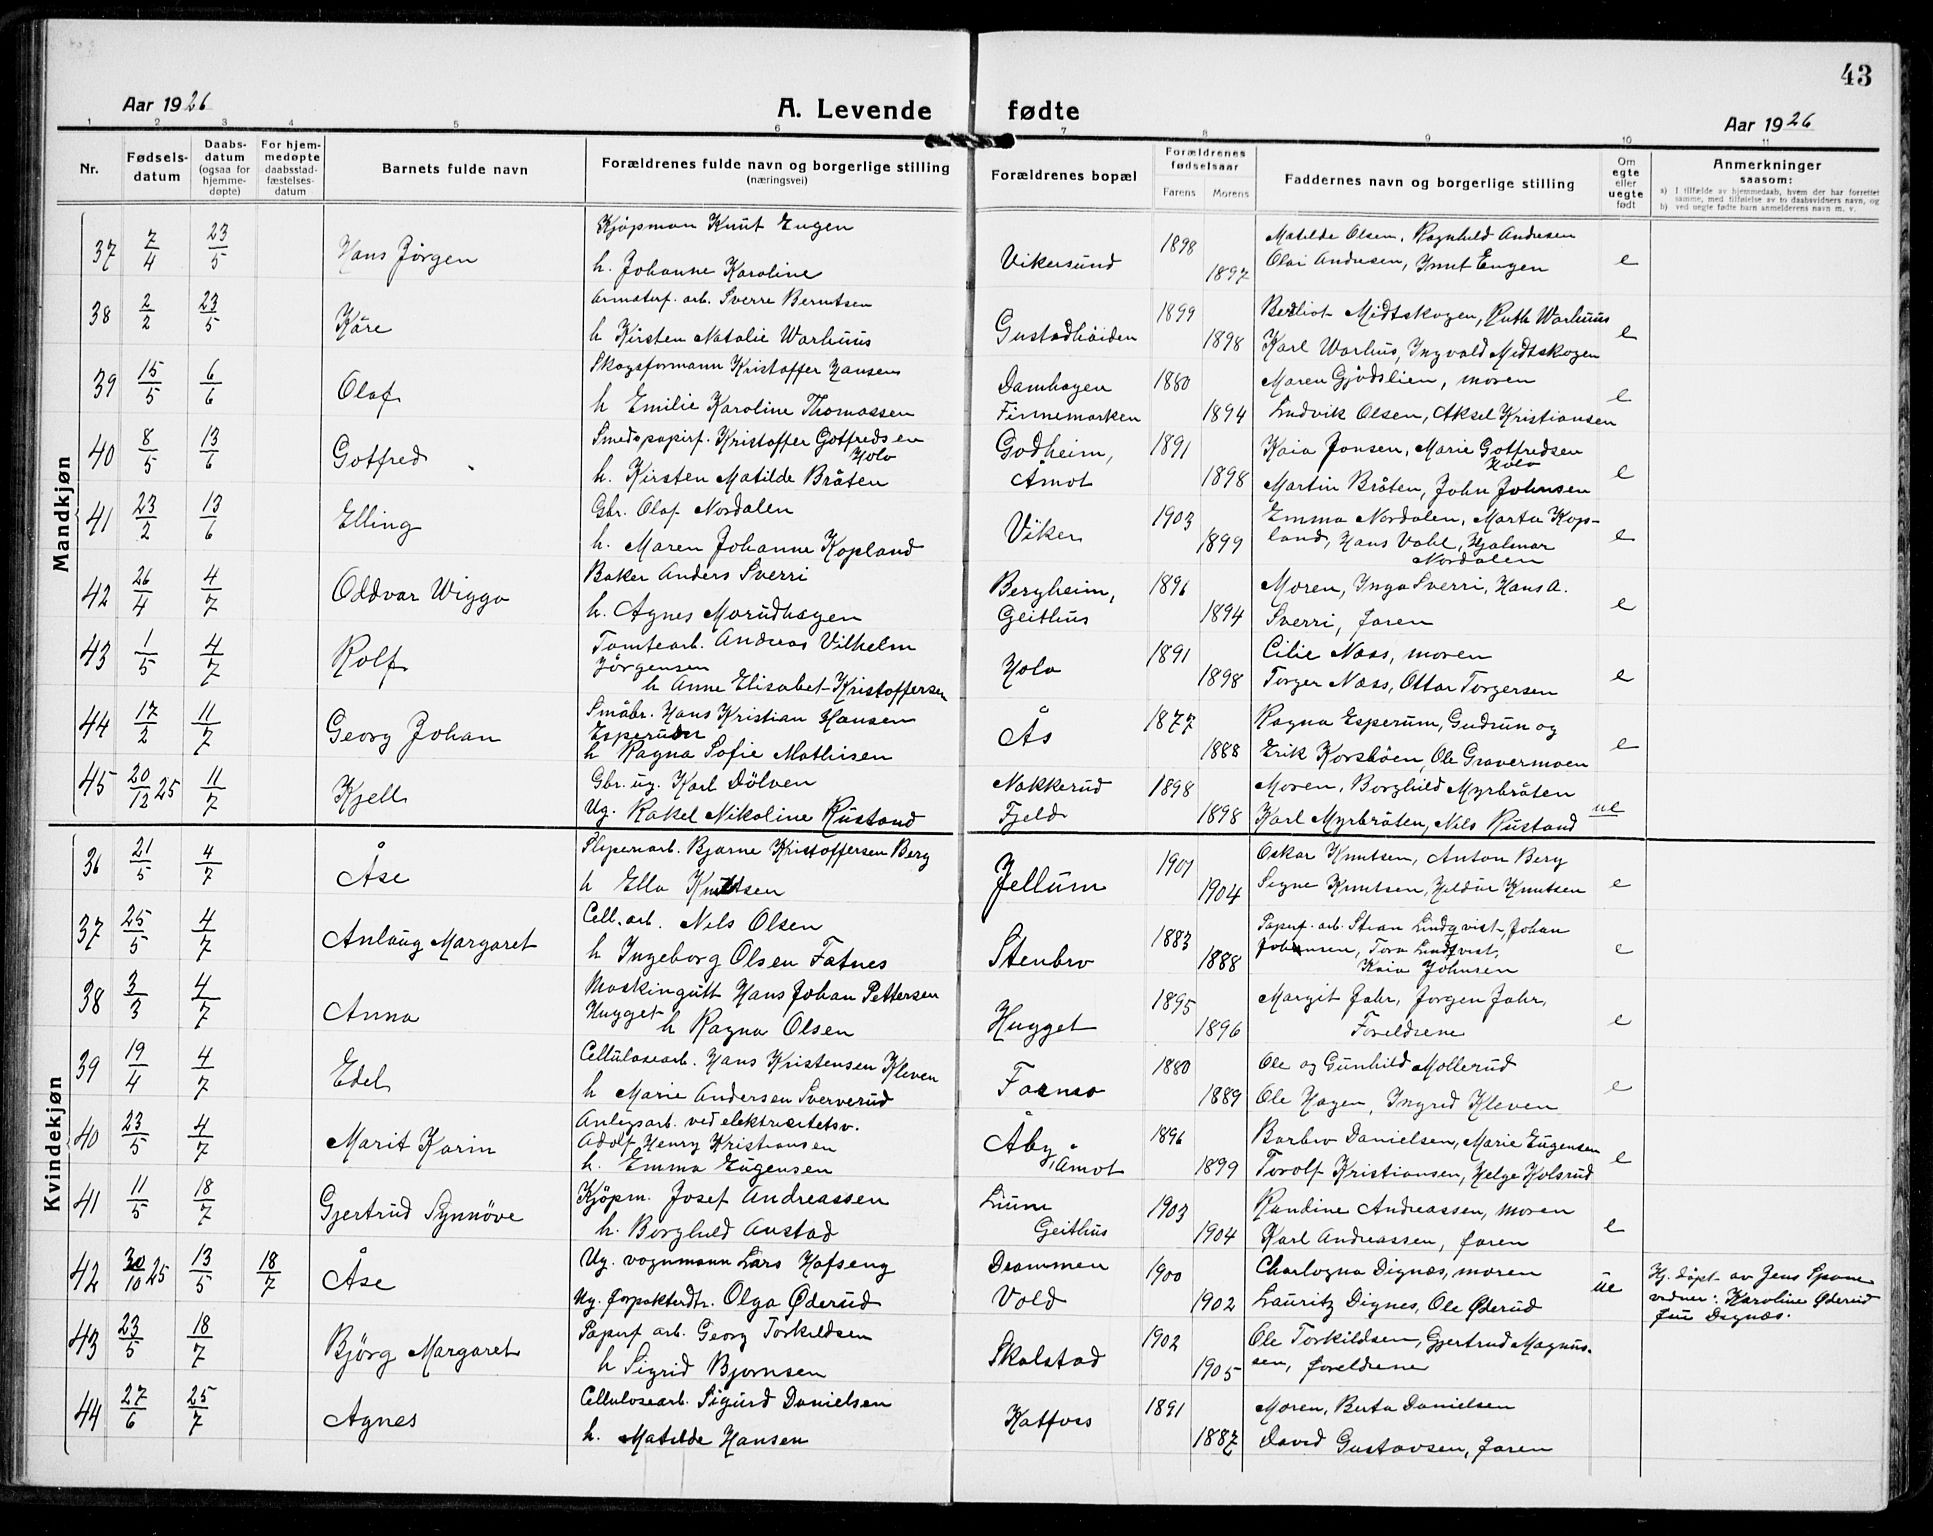 43
Aar 1926
A. Levende fødte
Aar 1926
1 2 3 4 5 6 7 8 9 10 11
Nr.
Fødselsdatum
Daabsdatum (ogsaa for hjemmedøpte)
For hjemmedøpte daabsstadfæstelsesdatum
Barnets fulde navn
Forældrenes fulde navn og borgerlige stilling (næringsvei)
Forældrenes bopæl
Forældrenes fødselsaar
Farens Morens
Faddernes navn og borgerlige stilling
Om egte eller uegte født
Anmerkninger saasom:
a) I tilfælde av hjemmedaab, hvem der har forrettet samme, med tilføielse av to daabsvidners navn, og
b) ved uegte fødte barn anmelderens navn m. v.
Mandkjøn
37 7/4 23/5 Hans Jørgen
Kjøpman Knut Eugen
h. Johanne Karoline
Vikersund 1898 1897
Matilde Olsen, Ragnhild Andresen
Olai Andresen, Knut Eugen
e
38 2/2 23/5 Kåre
Armaturf. arb. Sverre Berntsen
h Kirsten Natalie Warhuus
Gustadhøiden 1899 1898
Bergliot Midtskogen, Ruth Warhuus
Karl Warhus, Ingvald Midtskogen
e
39 15/5 6/6 Olaf
Skogsformann Kristoffer Hansen
h Emilie Karoline Thomassen
Damhagen
Finnemarken 1880 1894
Maren Gjødslien, moren
Ludvik Olsen, Aksel Kristiansen
e
40 8/5 13/6 Gotfred
Smed papirf. Kristoffer Gotfredsen
Holo
h. Kirsten Matilde Bråten
Godheim,
Åmot 1891 1898
Kaia Jonsen, Marie Gotfredsen
Holo
Martin Bråten, John Johnsen
e
41 23/2 13/6 Elling
Gbr. Olaf Nordalen
h. Maren Johanne Kopland
Viker 1903 1899
Emma Nordalen, Marta Kop-
land, Hans Vahl, Hjalmar
Nordalen
e
42 26/4 4/7 Oddvar Wiggo
Baker Anders Sverri
h. Agnes Morudhagen
Bergheim,
Geithus 1896 1894
Moren, Inga Sverri, Hans A.
Sverri, faren
e
43 1/5 4/7 Rolf
Tomtearb. Andreas Vilhelm
Jørgensen
h Anne Elisabet Kristoffersen
Holo 1891 1898
Cilie Næss, moren
Torger Næss, Ottar Torgersen
e
44 17/2 11/7 Georg Johan
Småbr. Hans Kristian Hansen
Esperuden
h Ragna Sofie Mathisen
Ås 1877 1888
Ragna Esperum, Gudrun og
Erik Korsbøen, Ole Gravermoen
e
45 20/12 25 11/7 Kjell
Gbr. ug. Karl Dølven
Ug. Rakel Nikoline Rustand
Nakkerud
Fjeld 1898 1898
Moren, Borghild Myrbråten
Karl Myrbråten, Nils Rustand
ue
Kvindekjøn
36 21/5 4/7 Åse
Sliperiarb. Bjarne Kristoffersen Berg
h Ella Knutsen
Jellum 1901 1904
Oskar Knutsen, Anton Berg
Signe Knutsen, Heldur Knutsen
e
37 25/5 4/7 Anlaug Margaret
Cell. arb. Nils Olsen
h Ingeborg Olsen Fatnes
Stenbro 1883 1888
Papirf. arb. Stian Lindqvist, Johan
Johansen, Tora Lindqvist,
Kaia Johnsen
e
38 3/3 4/7 Anna
Maskingutt Hans Johan Pettersen
Hugget
h Ragna Olsen
Hugget 1895 1896
Margit Jahr, Jørgen Jahr,
Foreldrene
e
39 19/4 4/7 Edel
Cellulosearb. Hans Kristensen Kleven
h Marie Andersen Sververud
1880 1889
Ole og Gunhild Mollerud
Ole Hagen, Ingrid Kleven
e
40 23/5 4/7 Marit Karin
Anlegsarb. ved elektricitetsv.
Adolf Henry Kristiansen
h. Emma Eugensen
Åby, Åmot 1896 1899
Borbro Danielsen, Marie Eugensen
Torolf Kristiansen, Helge Kolsrud
e
41 11/5 18/7 Gjertrud Synnøve
Kjøpm. Josef Andreassen
h. Borghild Austad
Geithus 1903 1904
Randine Andreassen, moren
Karl Andreassen, faren
e
42 30/10 25 13/5 18/7 Åse
Ug. vognmann Lars Hafseng
Ug. forpakterdtr. Olga Øderud
Drammen
Vold 1900 1902
Dignæs, moren
Lauritz Dignes, Ole Øderud
ue
Hj. døpt av Jens Spone
vidner: Karoline Øderud
fru Dignæs.
43 23/5 18/7 Bjørg Margaret
Papirf arb. Georg Torkildsen
h Sigrid Bjørnsen
Skalstad 1902 1905
Ole Torkildsen, Gjertrud Magnus-
sen, foreldrene
44 27/6 25/7 Agnes
Cellulosearb. Sigurd Danielsen
h. Matilde Hansen
Katfoss 1891 1887
Moren, Berta Danielsen
David Gustavsen, faren